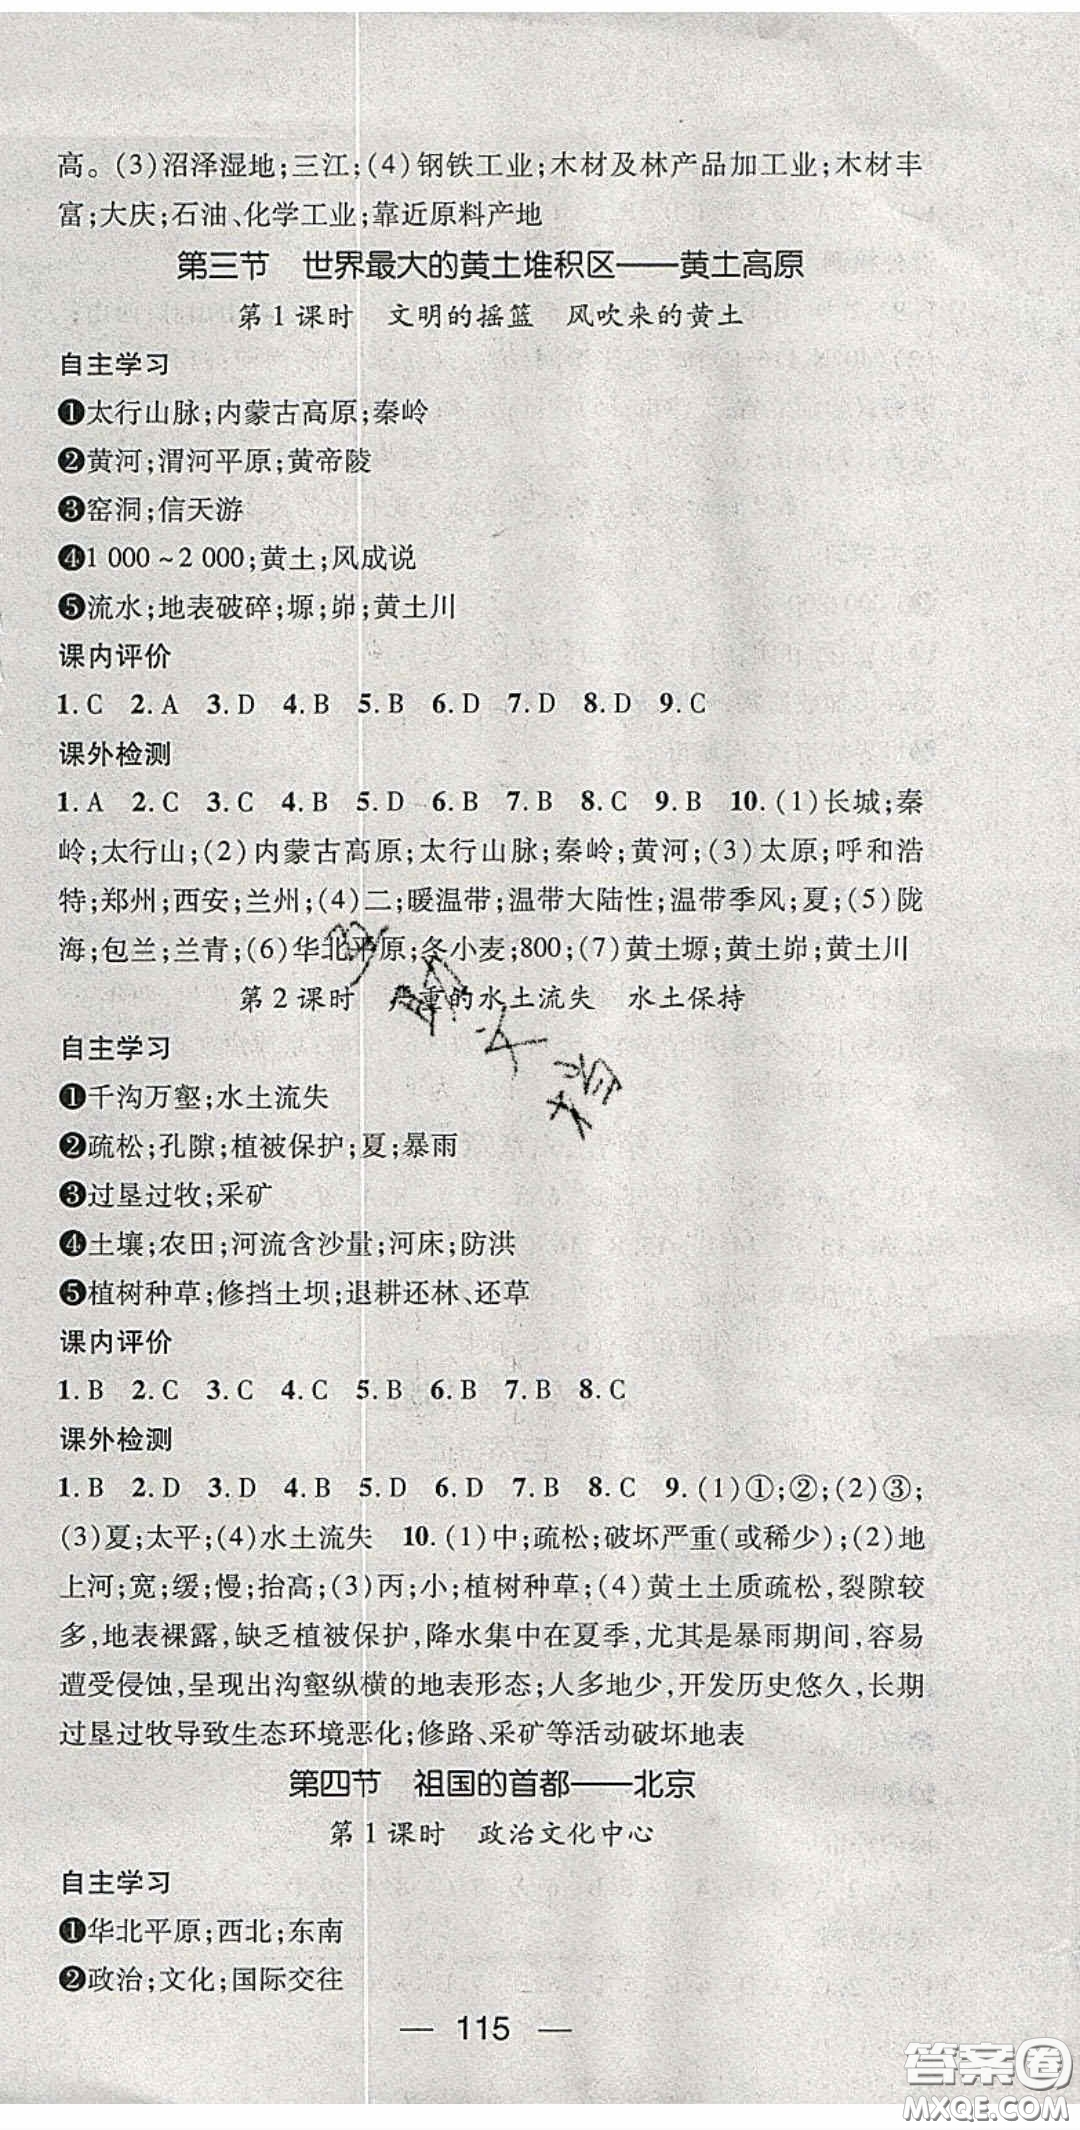 高。(3)沼泽湿地;三江;(4)钢铁工业;木材及林产品加工业;木材丰
富;大庆;石油、化学工业;靠近原料产地
第三节 世界最大的黄土堆积区——黄土高原
第1课时 文明的摇篮 风吹来的黄土
自主学习
❶太行山脉;内蒙古高原;秦岭
❷黄河;渭河平原;黄帝陵
❸窑洞;信天游
❹1 000~2 000;黄土;风成说
❺流水;地表破碎;塬;峁;黄土川
课内评价
1. C 2. A 3. D 4. B 5. B 6. D 7. D 8. D 9. C
课外检测
1. A 2. C 3. C 4. B 5. D 6. B 7. B 8. C 9. B 10. (1)长城;秦
岭;太行山;(2)内蒙古高原;太行山脉;秦岭;黄河;(3)太原;呼和浩
特;郑州;西安;兰州;(4)二;暖温带;温带大陆性;温带季风;夏;(5)陇
海;包兰;兰青;(6)华北平原;冬小麦;800;(7)黄土塬;黄土峁;黄土川
第2课时 严重的水土流失 水土保持
自主学习
❶千沟万壑;水土流失
❷疏松;孔隙;植被保护;夏;暴雨
❸过垦过牧;采矿
❹土壤;农田;河流含沙量;河床;防洪
❺植树种草;修挡土坝;退耕还林、还草
课内评价
1. B 2. C 3. C 4. C 5. B 6. B 7. B 8. C
课外检测
1. B 2. D 3. D 4. D 5. B 6. D 7. B 8. C 9. (1)①;②;(2)③;
(3)夏;太平;(4)水土流失 10. (1)中;疏松;破坏严重(或稀少);(2)地
上河;宽;缓;慢;抬高;(3)丙;小;植树种草;(4)黄土土质疏松,裂隙较
多,地表裸露,缺乏植被保护,降水集中在夏季,尤其是暴雨期间,容易
遭受侵蚀,呈现出沟壑纵横的地表形态;人多地少,开发历史悠久,长期
过垦过牧导致生态环境恶化;修路、采矿等活动破坏地表
第四节 祖国的首都——北京
第1课时 政治文化中心
自主学习
❶华北平原;西北;东南
❷政治;文化;国际交往
— 115 —
答案圈
MXQE.COM